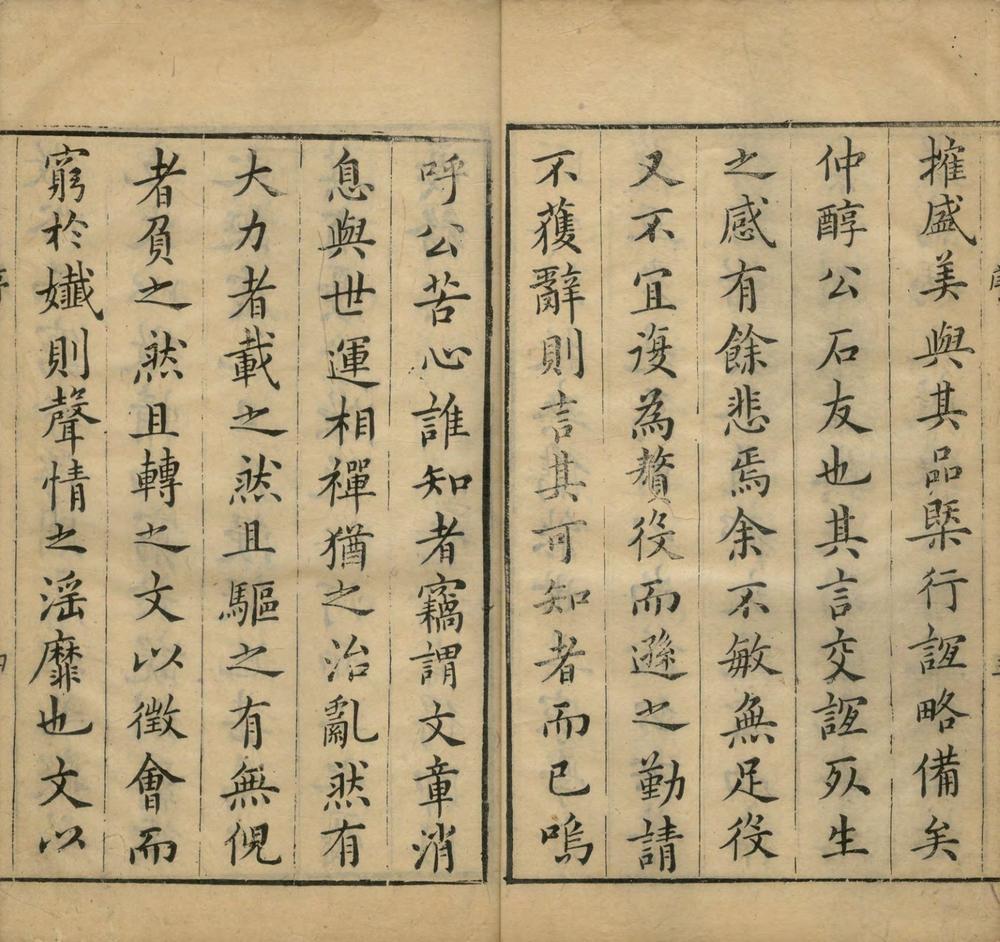 擁盛美與其品槩行誼略備矣
仲醇公石友也其言交誼死生
之感有餘悲焉余不敏無足役
又不宜復為贅役而遜之勤請
不獲辭則言其可知者而已嗚
呼公苦心誰知者竊謂文章消
息與世運相禪猶之治亂然有
大力者載之然且驅之有無倪
者負之然且轉之文以徵會而
窮於孅則聲情之淫靡也文以
序